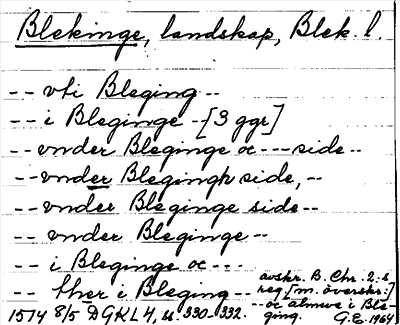 Blekinge, landskap, Blek. l.
-- vti Bleging --
-- i Bleginge -- [3 ggr]
-- vnder Bleginge oc --- side --
-- vnder Blegingh side, --
-- vnder Bleginge side --
-- vnder Bleginge --
-- i Bleginge oc ---
-- ther i Bleging --
avskr. B. Chr. 2:s
reg. [m. överskr.:]
-- oc almwe i Ble-
ging.
1514 8/5 DGKL 4, s. 330-332. G.E. 1964